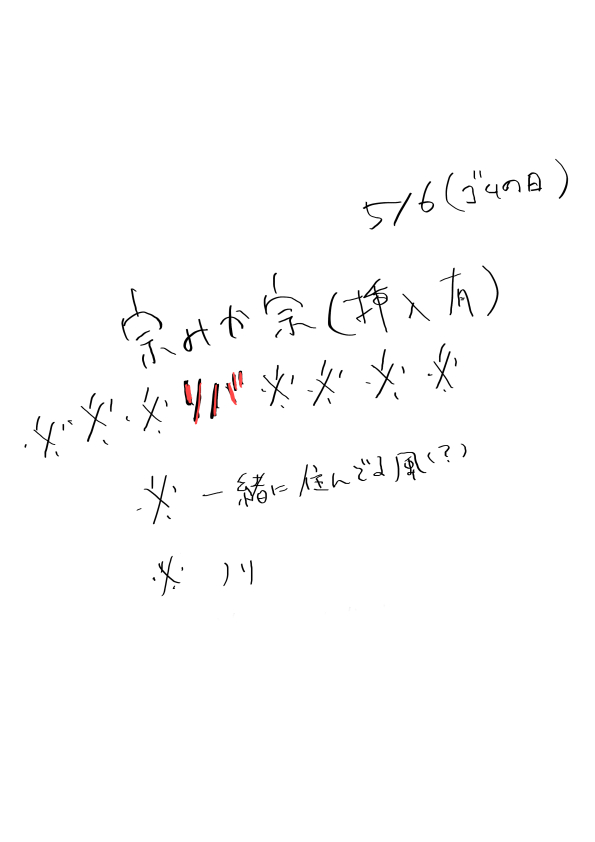 5/6(ゴムの日)
宗みか宗(挿入有)
※※※リバ※※※※
※ 一緒に住んでる風(?)
※ ノリ